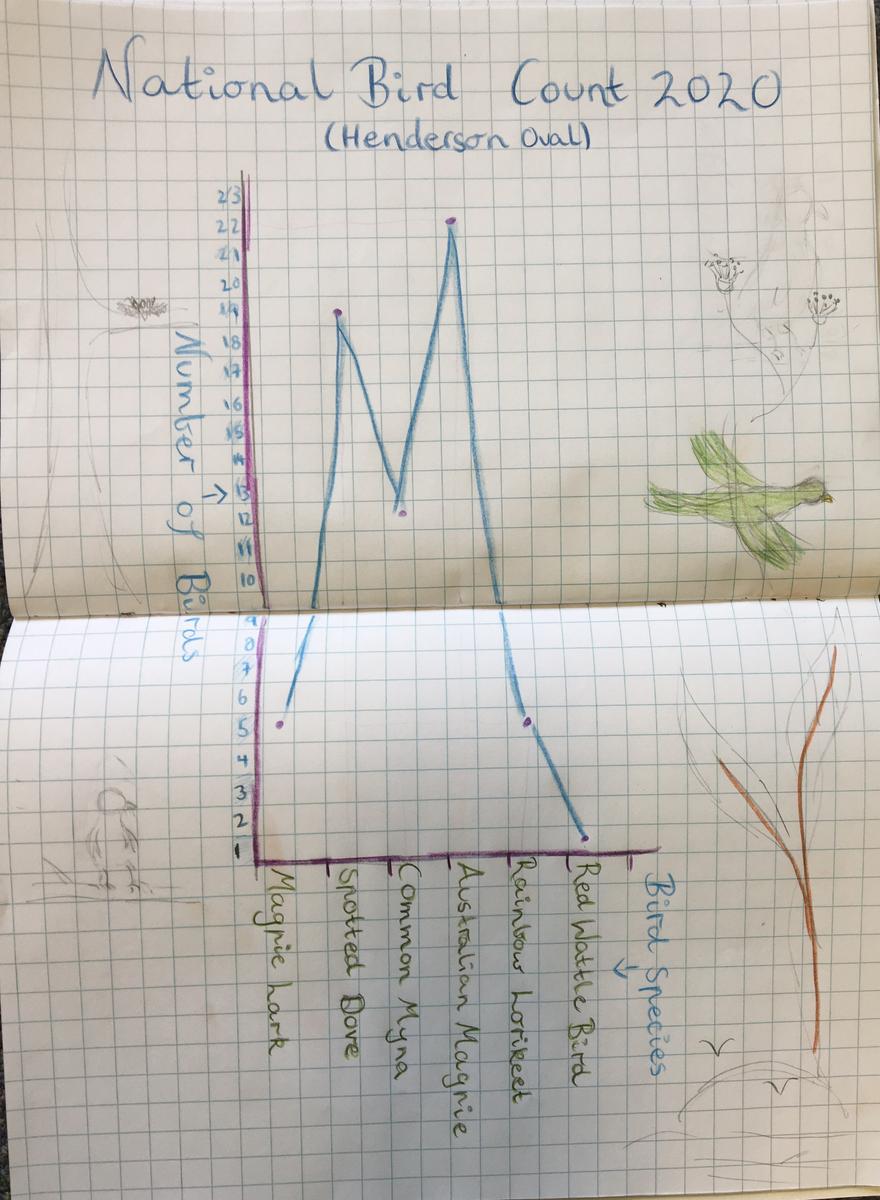 National Bird Count 2020
(Henderson Oval)
23
22
21
20
19
18
17
16
15
13
12
11
10
9
8
7
6
5
4
3
2
1
Number of Birds
Magpie Lark
Spotted Dove
Common Myna
Australian Magpie
Rainbow Lorikeet
Red Wattle Bird
Bird Species